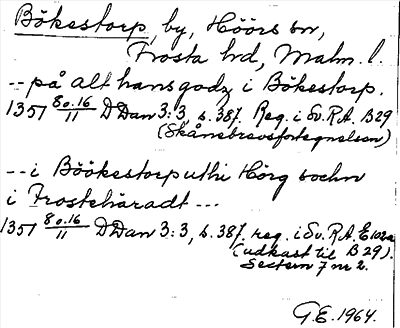 Bökestorp, by, Höörs sn,
Frosta hd, Malm. l.
-- på alt hans godz i Bökestorp.
1351 8 o. 16/11 DDan 3:3, s. 387. Reg. i Sv. R.A. B 29
(Skånebrevsfortegnelsen)
-- i Böökestorp uthi Hörg sochn
i Frosteháradt ---
1351 8 o. 16/11 DDan 3:3, s. 387. reg. i Sv. R.A. E 102a
(udkast til B 29).
Sectern 7 nr 2.
G.E. 1964.